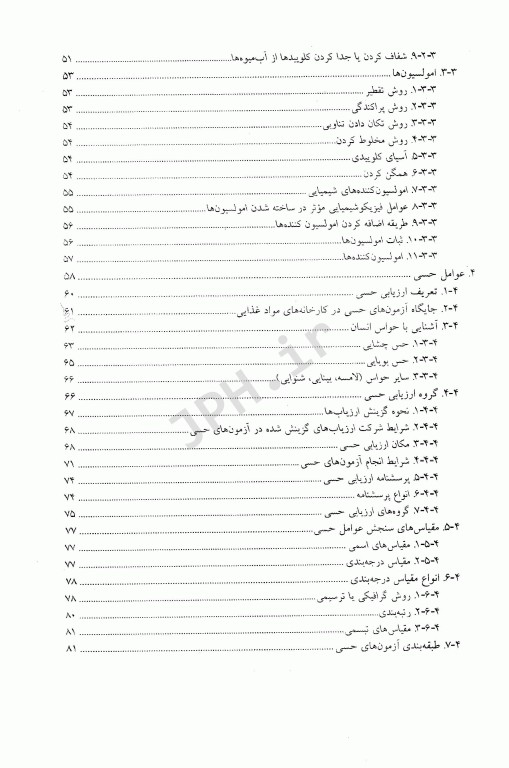 ۹-۲-۳. شفاف کردن یا جدا کردن کلوییدها از آب‌میوه‌ها ........ ۵۱
۳-۳. امولسیون‌ها ........ ۵۳
۱-۳-۳. روش تقطیر ........ ۵۳
۲-۳-۳. روش پراکندگی ........ ۵۳
۳-۳-۳. روش تکان دادن تناوبی ........ ۵۴
۴-۳-۳. روش مخلوط کردن ........ ۵۴
۵-۳-۳. آسیای کلوییدی ........ ۵۴
۶-۳-۳. همگن کردن ........ ۵۴
۷-۳-۳. امولسیون‌کننده‌های شیمیایی ........ ۵۵
۸-۳-۳. عوامل فیزیکوشیمیایی مؤثر در ساخته شدن امولسیون‌ها ........ ۵۵
۹-۳-۳. طریقه اضافه کردن امولسیون کننده‌ها ........ ۵۶
۱۰-۳-۳. ثبات امولسیون‌ها ........ ۵۶
۱۱-۳-۳. امولسیون‌کننده‌ها ........ ۵۷
۴. عوامل حسی ........ ۵۸
۱-۴. تعریف ارزیابی حسی ........ ۶۰
۲-۴. جایگاه آزمون‌های حسی در کارخانه‌های مواد غذایی ........ ۶۱
۳-۴. آشنایی با حواس انسان ........ ۶۲
۱-۳-۴. حس چشایی ........ ۶۳
۲-۳-۴. حس بویایی ........ ۶۵
۳-۳-۴. سایر حواس (لامسه، بینایی، شنوایی) ........ ۶۶
۴-۴. گروه ارزیابی حسی ........ ۶۶
۱-۴-۴. نحوه گزینش ارزیاب‌ها ........ ۶۷
۲-۴-۴. شرایط شرکت ارزیاب‌های گزینش شده در آزمون‌های حسی ........ ۶۸
۳-۴-۴. مکان ارزیابی حسی ........ ۶۸
۴-۴-۴. شرایط انجام آزمون‌های حسی ........ ۷۱
۵-۴-۴. پرسشنامه ارزیابی حسی ........ ۷۴
۶-۴-۴. انواع پرسشنامه ........ ۷۴
۷-۴-۴. گروه‌های ارزیابی حسی ........ ۷۵
۵-۴. مقیاس‌های سنجش عوامل حسی ........ ۷۷
۱-۵-۴. مقیاس‌های اسمی ........ ۷۷
۲-۵-۴. مقیاس درجه‌بندی ........ ۷۷
۶-۴. انواع مقیاس درجه‌بندی ........ ۷۸
۱-۶-۴. روش گرافیکی یا ترسیمی ........ ۷۸
۲-۶-۴. رتبه‌بندی ........ ۸۰
۳-۶-۴. مقیاس‌های تبسمی ........ ۸۱
۷-۴. طبقه‌بندی آزمون‌های حسی ........ ۸۱
JPH.ir